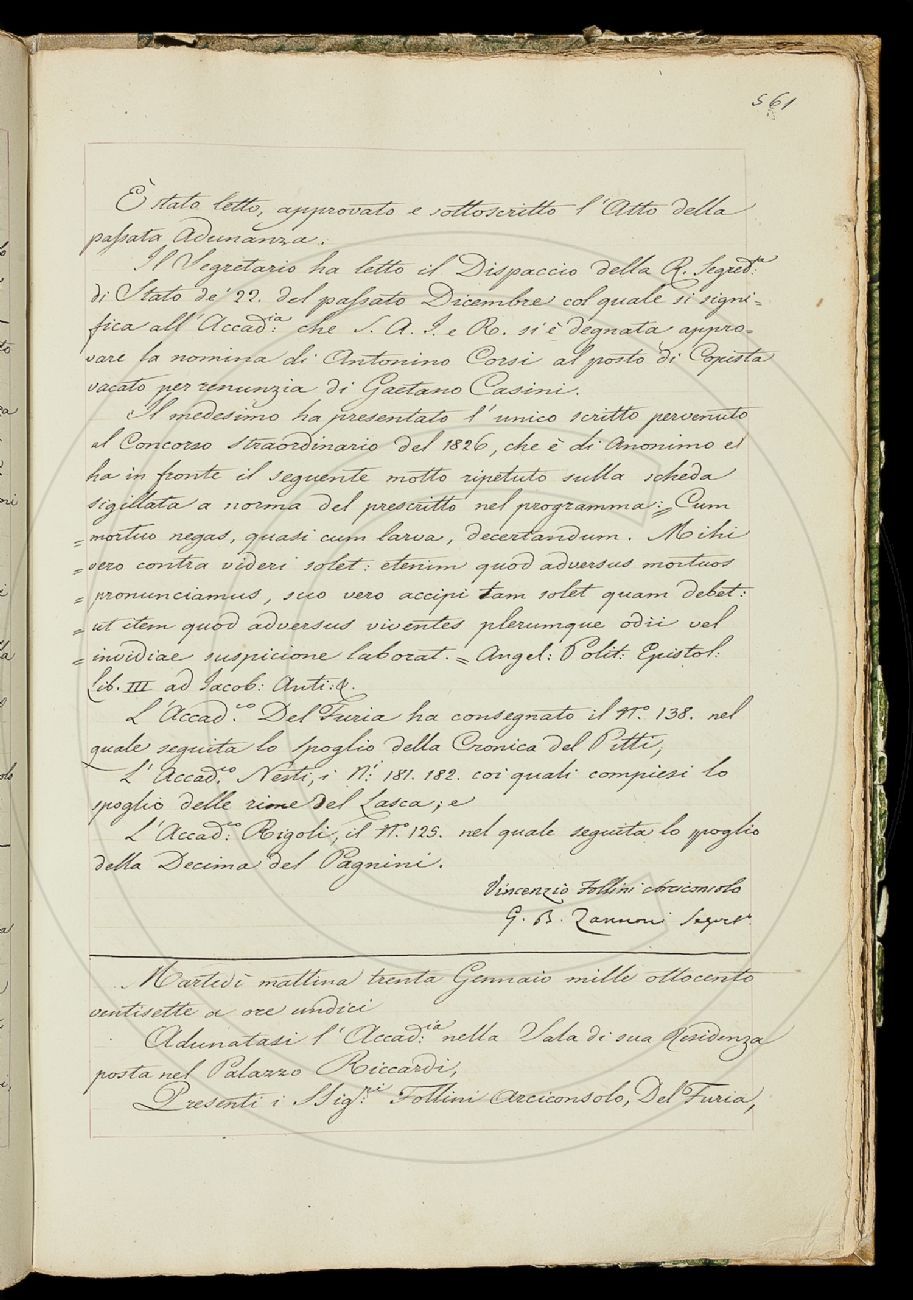 561
È stato letto, approvato e sottoscritto l'Atto della
passata Adunanza.
Il Segretario ha letto il Dispaccio della R. Segred:ia
di Stato de' 22. del passato Dicembre col quale si signi=
fica all'Accad:ia che S. A. I. e R. si è degnata appro=
vare la nomina di Antonino Corsi al posto di Copista
vacato per renunzia di Gaetano Casini.
Il medesimo ha presentato l'unico scritto pervenuto
al Concorso straordinario del 1826, che è di Anonimo e
ha in fronte il seguente motto ripetuto sulla scheda
sigillata a norma del prescritto nel programma: = Cum
= mortuo negas, quasi cum larva, decertandum. Mihi
= vero contra videri solet: etenim quod adversus mortuos
= pronunciamus, suo vero accipi tam solet quam debet:
= ut item quod adversus viventes plerumque odii vel
= invidiae suspicione laborat. = Angel: Polit: Epistol:
Lib. III ad Jacob: Anti:
L'Accad:co Del Furia ha consegnato il N.o 138. nel
quale seguita lo spoglio della Cronica del Pitti;
L'Accad:co Nesti, i N:i 181. 182. coi quali compiesi lo
spoglio delle rime del Lasca; e
L'Accad:co Rigoli, il N.o 125. nel quale seguita lo spoglio
della Decima del Pagnini.
Vincenzio Follini Arciconsolo
G. B. Zannoni Segret.o
Martedì mattina trenta Gennaio mille ottocento
ventisette a ore undici
Adunatasi l'Accad:ia nella Sala di sua Residenza
posta nel Palazzo Riccardi,
Presenti i SSig:ri Follini Arciconsolo, Del Furia,